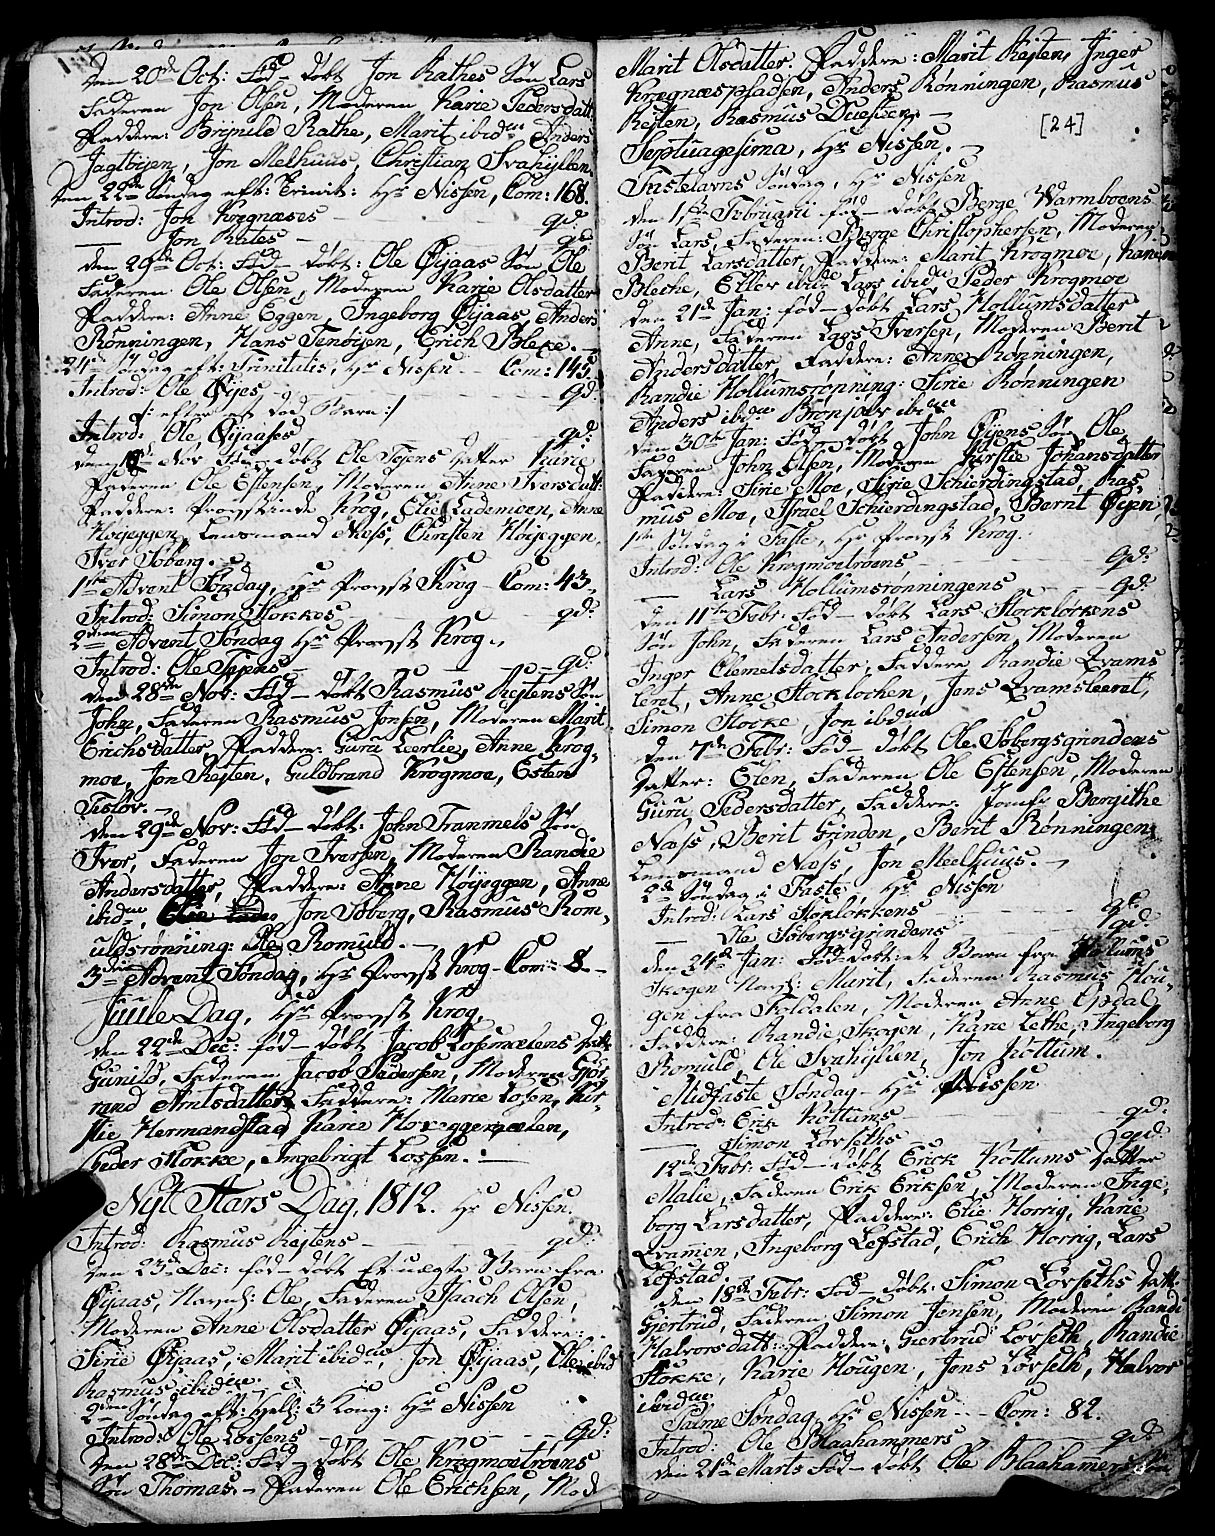 den 20de Oct: Fød – døbt Jon Rathes Søn Lars
Faderen Jon Olsen, Moderen Karie Pedersdatt:
Faddere: Brynild Rathe, Marit ibid: Anders
Jagtøyen, Jon Melhuus, Christian Svahyllen
den 22de Søndag eft: Trinit: Hr Nissen, Com: 168.
Introd: Jon Krognæses – qd:
— Jon Rates – qd:
den 29de Oct: Fød – døbt: Ole Øyaas Søn Ole
Faderen Ole Olsen, Moderen Karie Olsdatter
Faddere: Anne Eggen, Ingeborg Øyaas, Anders
Rønningen, Hans Tenøyen, Erich Bleke. –
24de Søndag eft: Trinitatis, Hr Nissen – Com: 145.
Introd: Ole Øyes – qd:
/: efter et død Barn :/
Introd: Ole Øyaases – qd:
den Nov Fød – døbt Ole Teiens Datter Karie
Faderen Ole Estensen, Moderen Anne Iversdatt:
Faddere: Provstinde Krog, Elie Lademoen, Anne
Høyeggen, Lensmand Næss, Christen Høyeggen,
Iver Søberg. –
1ste Advent Søndag, Hr Provst Krog – Com: 43.
Introd: Simon Stokkes – qd:
2den Advent Søndag Hr Provst Krog.
Introd: Ole Teiens – qd:
den 28de Nov: Fød – døbt Rasmus Reitens Søn
John, Faderen Rasmus Jonsen, Moderen Marit
Erichsdatter, Faddere: Guru Leerlie, Anne Krog-
moe, Jon Reiten, Guldbrand Krogmoe, Esten
Tisløv. –
den 29de Nov: Fød – døbt: John Tranmels Søn
Iver, Faderen Jon Iversen, Moderen Randie
Andersdatter, Faddere: Anne Høyeggen, Anne
ibid: Jon Søberg, Rasmus Rom-
uldsrønning: Ole Romuld. –
3die Advent Søndag, Hr Provst Krog – Com: 8 –
Juule Dag, Hr Provst Krog,
den 22de Dec: fød – døbt Jacob Losemælens Datt:
Gunild, Faderen Jacob Pedersen, Moderen Gjør-
rand Arntsdatter, Faddere: Marie Losen, Kir-
stie Hermanstad, Karie Hoveggemælen,
Peder Stokke, Ingebrigt Lossen. –
Nyt Aars Dag, 1812. Hr Nissen.
Introd: Rasmus Reitens – qd:
den 23de Dec: fød – døbt Et uægte Barn fra
Øyaas, Navnl: Ole, Faderen Isaach Olsen,
Moderen Anne Olsdatter Øyaas, Faddere:
Sirie Øyaas, Marit ibid:, Jon Øyaas, Ole ibid
Rasmus ibid:
2den Søndag eft: Hell: 3 Kong: Hr Nissen
Introd: Ole Lorsens – qd:
den 28de Dec: Fød – døbt Ole Krogmoetrøens
Søn Thomas – Faderen Ole Erichsen, Mod
Marit Olsdatter. Faddere: Marit Reiten, Inger
Krognæspladsen, Anders Rønningen, Rasmus
Reiten, Rasmus
[24]
Septuagesima, Hr Nissen. –
Fastelavns Søndag, Hr Nissen
den 1ste Februarii fød – døbt Berge Warmboens
Søn Lars, Faderen: Berge Christophersen, Moderen
Berit Larsdatter, Faddere: Marit Krogmoe, Karen
Bleche, Ellev ibid: Lars ibid: Peder Krogmoe
den 21de Jan: fød – døbt Lars Hollumsdatter
Anne, Faderen Lars Iversen, Moderen Berit
Andersdatter, Faddere: Anne Rønningen,
Randie Hollumsrønning: Sirie Rønningen
Anders ibid: Brønjolv ibid:
den 30te Jan: Fød – døbt John Øyens Søn Ole
Faderen John Olsen, Moderen Kirstie Johansdatter
Faddere: Sirie Moe, Sirie Schierdingstad, Ras-
mus Moe, Israel Schierdingstad, Bernt Øyen,
1ste Søndag i Faste, Hr Provst Krog.
Introd: Ole Krogmoetrøens – qd:
— Lars Hollumsrønningens – qd:
den 11te Febr: Fød – døbt Lars Stockløkkens
Søn John, Faderen Lars Andersen, Moderen
Inger Clemetsdatter, Faddere Randie Qvams
leret, Anne Stocklochen, Jens Qvamsleeret,
Simon Stocke, Jon ibid:
den 7de Febr: Fød – døbt Ole Søbergsgrindens
Datter: Elen, Faderen Ole Estensen, Moderen
Guru Pedersdatter, Faddere: Jomfr Bergithe
Næss, Berit Grinden, Berit Rønningen,
Lensmand Næss, Jon Meelhuus. –
2de Søndag i Faste Hr Nissen
Introd: Lars Støpløkkens – qd:
— Ole Søbergsgrindens – qd:
den 24de Jan: Fød – døbt et Barn fra Hollums
Skogen Navnl: Marit, Faderen Rasmus Hou-
gen fra Foldalen, Moderen Anne Opdal
Faddere: Randie Skogen, Kane Lethe, Ingeborg
Romuld, Ole Svahyllen, Jon Kottum.
Midfaste Søndag – Hr Nissen
Introd: Erik Kottums – qd:
— Simon Lørseths – qd:
12de Febr: Fød – døbt Erick Kottums Datter
Malie, Faderen Erik Eriksen, Moderen Inge-
borg Larsdatter, Faddere: Elie Horrig, Karie
Qvammen, Ingeborg Lefstad, Erich Horrig, Lars
Lefstad.
den 18de Febr: Fød – døbt: Simon Lørseths Datt:
Giertrud, Faderen Simon Jensen, Moderen Randi
Halvorsdatt: Faddere: Giertrud Lørseth, Randie
Stokke, Karie Hougen, Jens Lørseth, Halvor
ibid:
Palme Søndag Hr Nissen – Com: 82.
Introd: Ole Blaahammers – qd:
den 21de Marts Fød – døbt Ole Blaahamers Søn